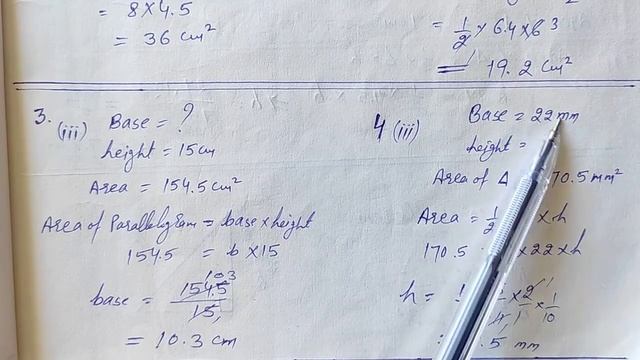 = 8 × 4.5
= 36 cm²
= 1/2 × 6.4 × 6 3
= 19.2 cm²
3. (iii) Base = ?
height = 15cm
Area = 154.5 cm²
Area of Parallelogram = base × height
154.5 = b × 15
base = 154.5/15 103
= 10.3 cm
4 (iii) Base = 22mm
height =
Area of Δ 170.5 mm²
Area = 1/2 × h
170.5 × 22 × h
h =
.5 mm